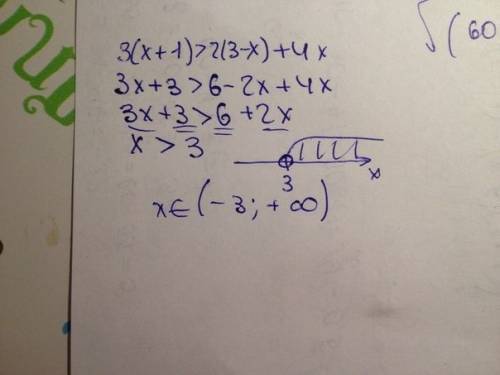 3(x+1)>2(3-x)+4x
√(60
3x+3>6-2x+4x
3x+3>6+2x
x>3
3
x
x∈(-3;+∞)